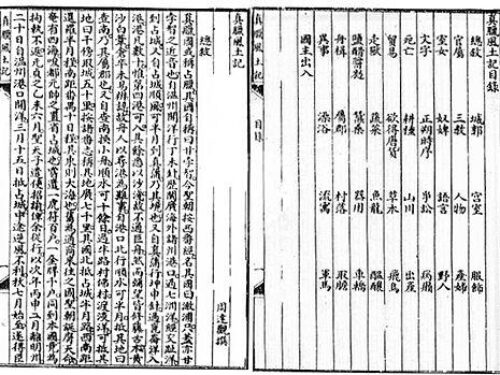 真臘風土記目錄
總敘 城郭 宮室 服飾
官屬 三教 人物 產婦
室女 奴婢 語言 野人
文字 正朔時序 爭訟 病癩
死亡 耕種 山川 出產
貿易 欲得唐貨 草木 飛鳥
走獸 蔬菜 魚龍 醞釀
鹽醋醬麴 蠶桑 器用 車轎
舟楫 屬郡 村落 取膽
異事 澡浴 流寓 軍馬
國主出入
真臘風土記 目錄
真臘風土記
周達觀撰
總敘
真臘國或稱占臘其國自稱曰甘孛智今聖朝按西番經名其國曰澉浦只蓋亦甘
孛智之近音也自溫州開洋行丁未針歷閩廣海外諸州港口過七洲洋經交趾洋
到占城又自占城順風可半月到真蒲乃其境也又自真蒲行坤申針過崑崙洋入
港港凡數十惟第四港可入其餘悉以沙淺故不通巨舟然而彌望皆修藤古木黃
沙白葦倉卒未易辨認故舟人以尋港為難事自港口北行順水可半月抵其地曰
查南乃其屬郡也又自查南換小舟順水可十餘日過半路村佛村渡淡洋可抵其
地曰干傍取城五十里按諸番志稱其地廣七千里其國北抵占城半月路西南距
暹羅半月程南距番禺十日程其東則大海也舊為通商來往之國聖朝誕膺天命
奄有四海唆都元帥之置省占城也嘗遣一虎符百戶一金牌千戶同到本國竟為
拘執不返元貞之乙未六月聖天子遣使招諭俾余從行以次年丙申二月離明州
二十日自溫州港口開洋三月十五日抵占城中途逆風不利秋七月始至遂得臣